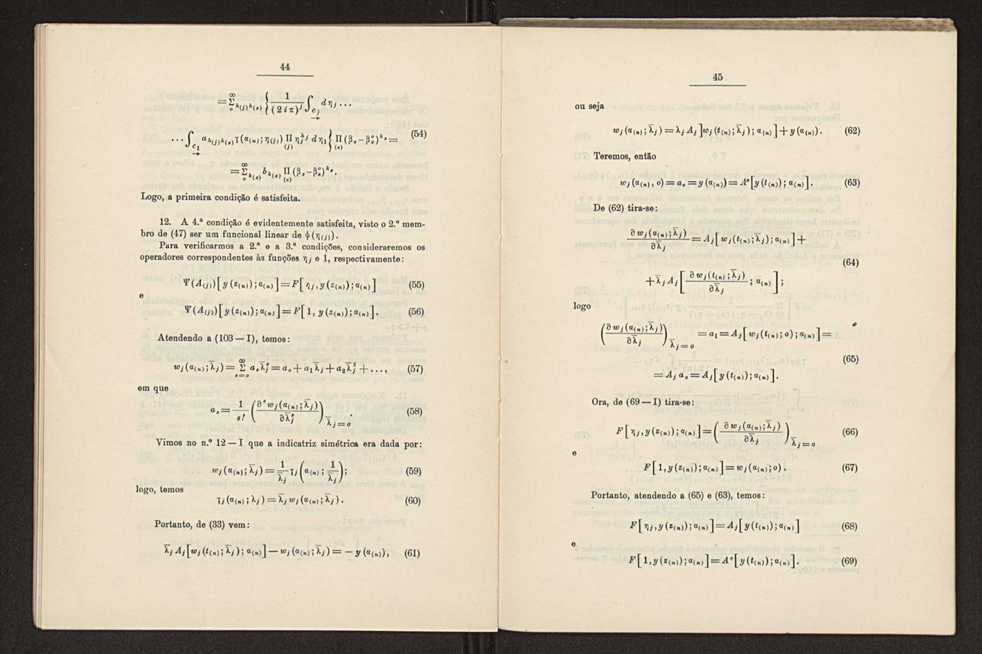 44
= Σ_o^∞ h(j) k(s) { 1/(2iπ)^j ∫_{c_j} dη_j ...
... ∫_{c_1} a_{h(j)k(s)} γ(a_(n); η_(j)) Π_(j) η_j^{h_j} dη_1 } Π_(s) (β_s − β_s^o)^{k_s} = (54)
= Σ_o^∞ k(s) b_{k(s)} Π_(s) (β_s − β_s^o)^{k_s}.
Logo, a primeira condição é satisfeita.
12. A 4.ª condição é evidentemente satisfeita, visto o 2.º mem-
bro de (47) ser um funcional linear de ψ(η_(j)).
Para verificarmos a 2.ª e a 3.ª condições, consideraremos os
operadores correspondentes às funções η_j e 1, respectivamente:
Ψ(A_(j))[y(z_(n)); a_(n)] = F[η_j, y(z_(n)); a_(n)] (55)
e
Ψ(A_(j))[y(z_(n)); a_(n)] = F[1, y(z_(n)); a_(n)]. (56)
Atendendo a (103 — I), temos:
w_j(a_(n); λ̄_j) = Σ_{s=o}^∞ a_s λ̄_j^s = a_o + a_1 λ̄_j + a_2 λ̄_j^2 + ..., (57)
em que
a_s = 1/s! (∂^s w_j(a_(n); λ̄_j) / ∂λ̄_j^s)_{λ̄_j = o}. (58)
Vimos no n.º 12 — I que a indicatriz simétrica era dada por:
w_j(a_(n); λ̄_j) = 1/λ̄_j γ_j(a_(n); 1/λ̄_j); (59)
logo, temos
γ_j(a_(n); λ_j) = λ̄_j w_j(a_(n); λ̄_j). (60)
Portanto, de (33) vem:
λ̄_j A_j[w_j(t_(n); λ̄_j); a_(n)] − w_j(a_(n); λ̄_j) = − y(a_(n)), (61)
45
ou seja
w_j(a_(n); λ̄_j) = λ_j A_j ]w_j(t_(n); λ̄_j); a_(n)] + y(a_(n)). (62)
Teremos, então
w_j(a_(n), o) = a_o = y(a_(n)) = A°[y(t_(n)); a_(n)]. (63)
De (62) tira-se:
∂w_j(a_(n); λ̄_j)/∂λ̄_j = A_j[w_j(t_(n); λ̄_j); a_(n)] +
(64)
+ λ̄_j A_j[∂w_j(t_(n); λ̄_j)/∂λ̄_j; a_(n)];
logo
(∂w_j(a_(n); λ̄_j)/∂λ̄_j)_{λ̄_j = o} = a_1 = A_j[w_j(t_(n); o); a_(n)] =
(65)
= A_j a_o = A_j[y(t_(n)); a_(n)].
Ora, de (69 — I) tira-se:
F[η_j, y(z_(n)); a_(n)] = (∂w_j(a_(n); λ̄_j)/∂λ̄_j)_{λ̄_j = o} (66)
e
F[1, y(z_(n)); a_(n)] = w_j(a_(n); o). (67)
Portanto, atendendo a (65) e (63), temos:
F[η_j, y(z_(n)); a_(n)] = A_j[y(t_(n)); a_(n)] (68)
e
F[1, y(z_(n)); a_(n)] = A°[y(t_(n)); a_(n)]. (69)